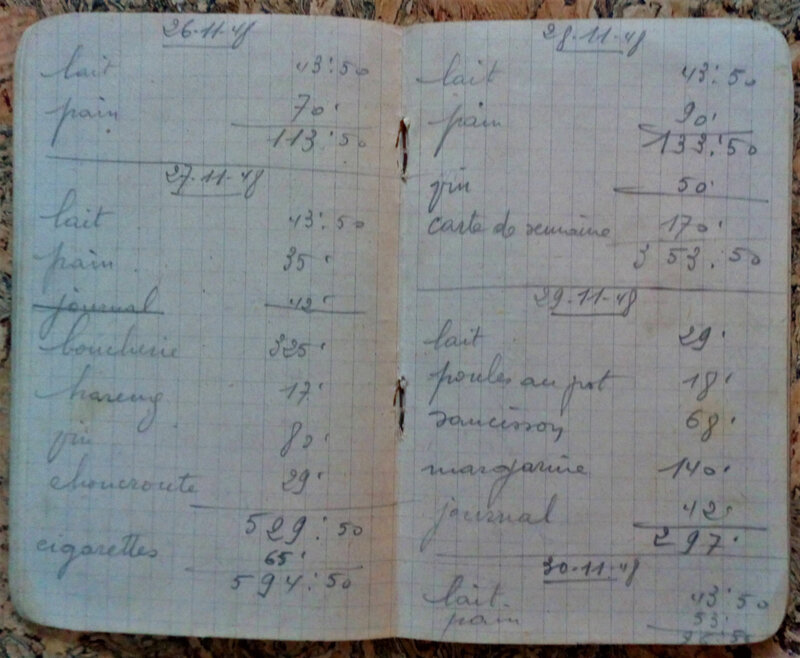 26-11-48
lait 43:50
pain 70'
113:50
27-11-48
lait 43:50
pain 35'
journal 42'
boucherie 325'
hareng 17'
vin 80'
choucroute 29'
529:50
cigarettes 65'
594:50
28-11-48
lait 43:50
pain 90'
133:50
vin 50'
carte de semaine 170'
353:50
29-11-48
lait 29'
poules au pot 18'
saucisson 68'
margarine 140'
journal 42'
297'
30-11-48
lait 43:50
pain 53'